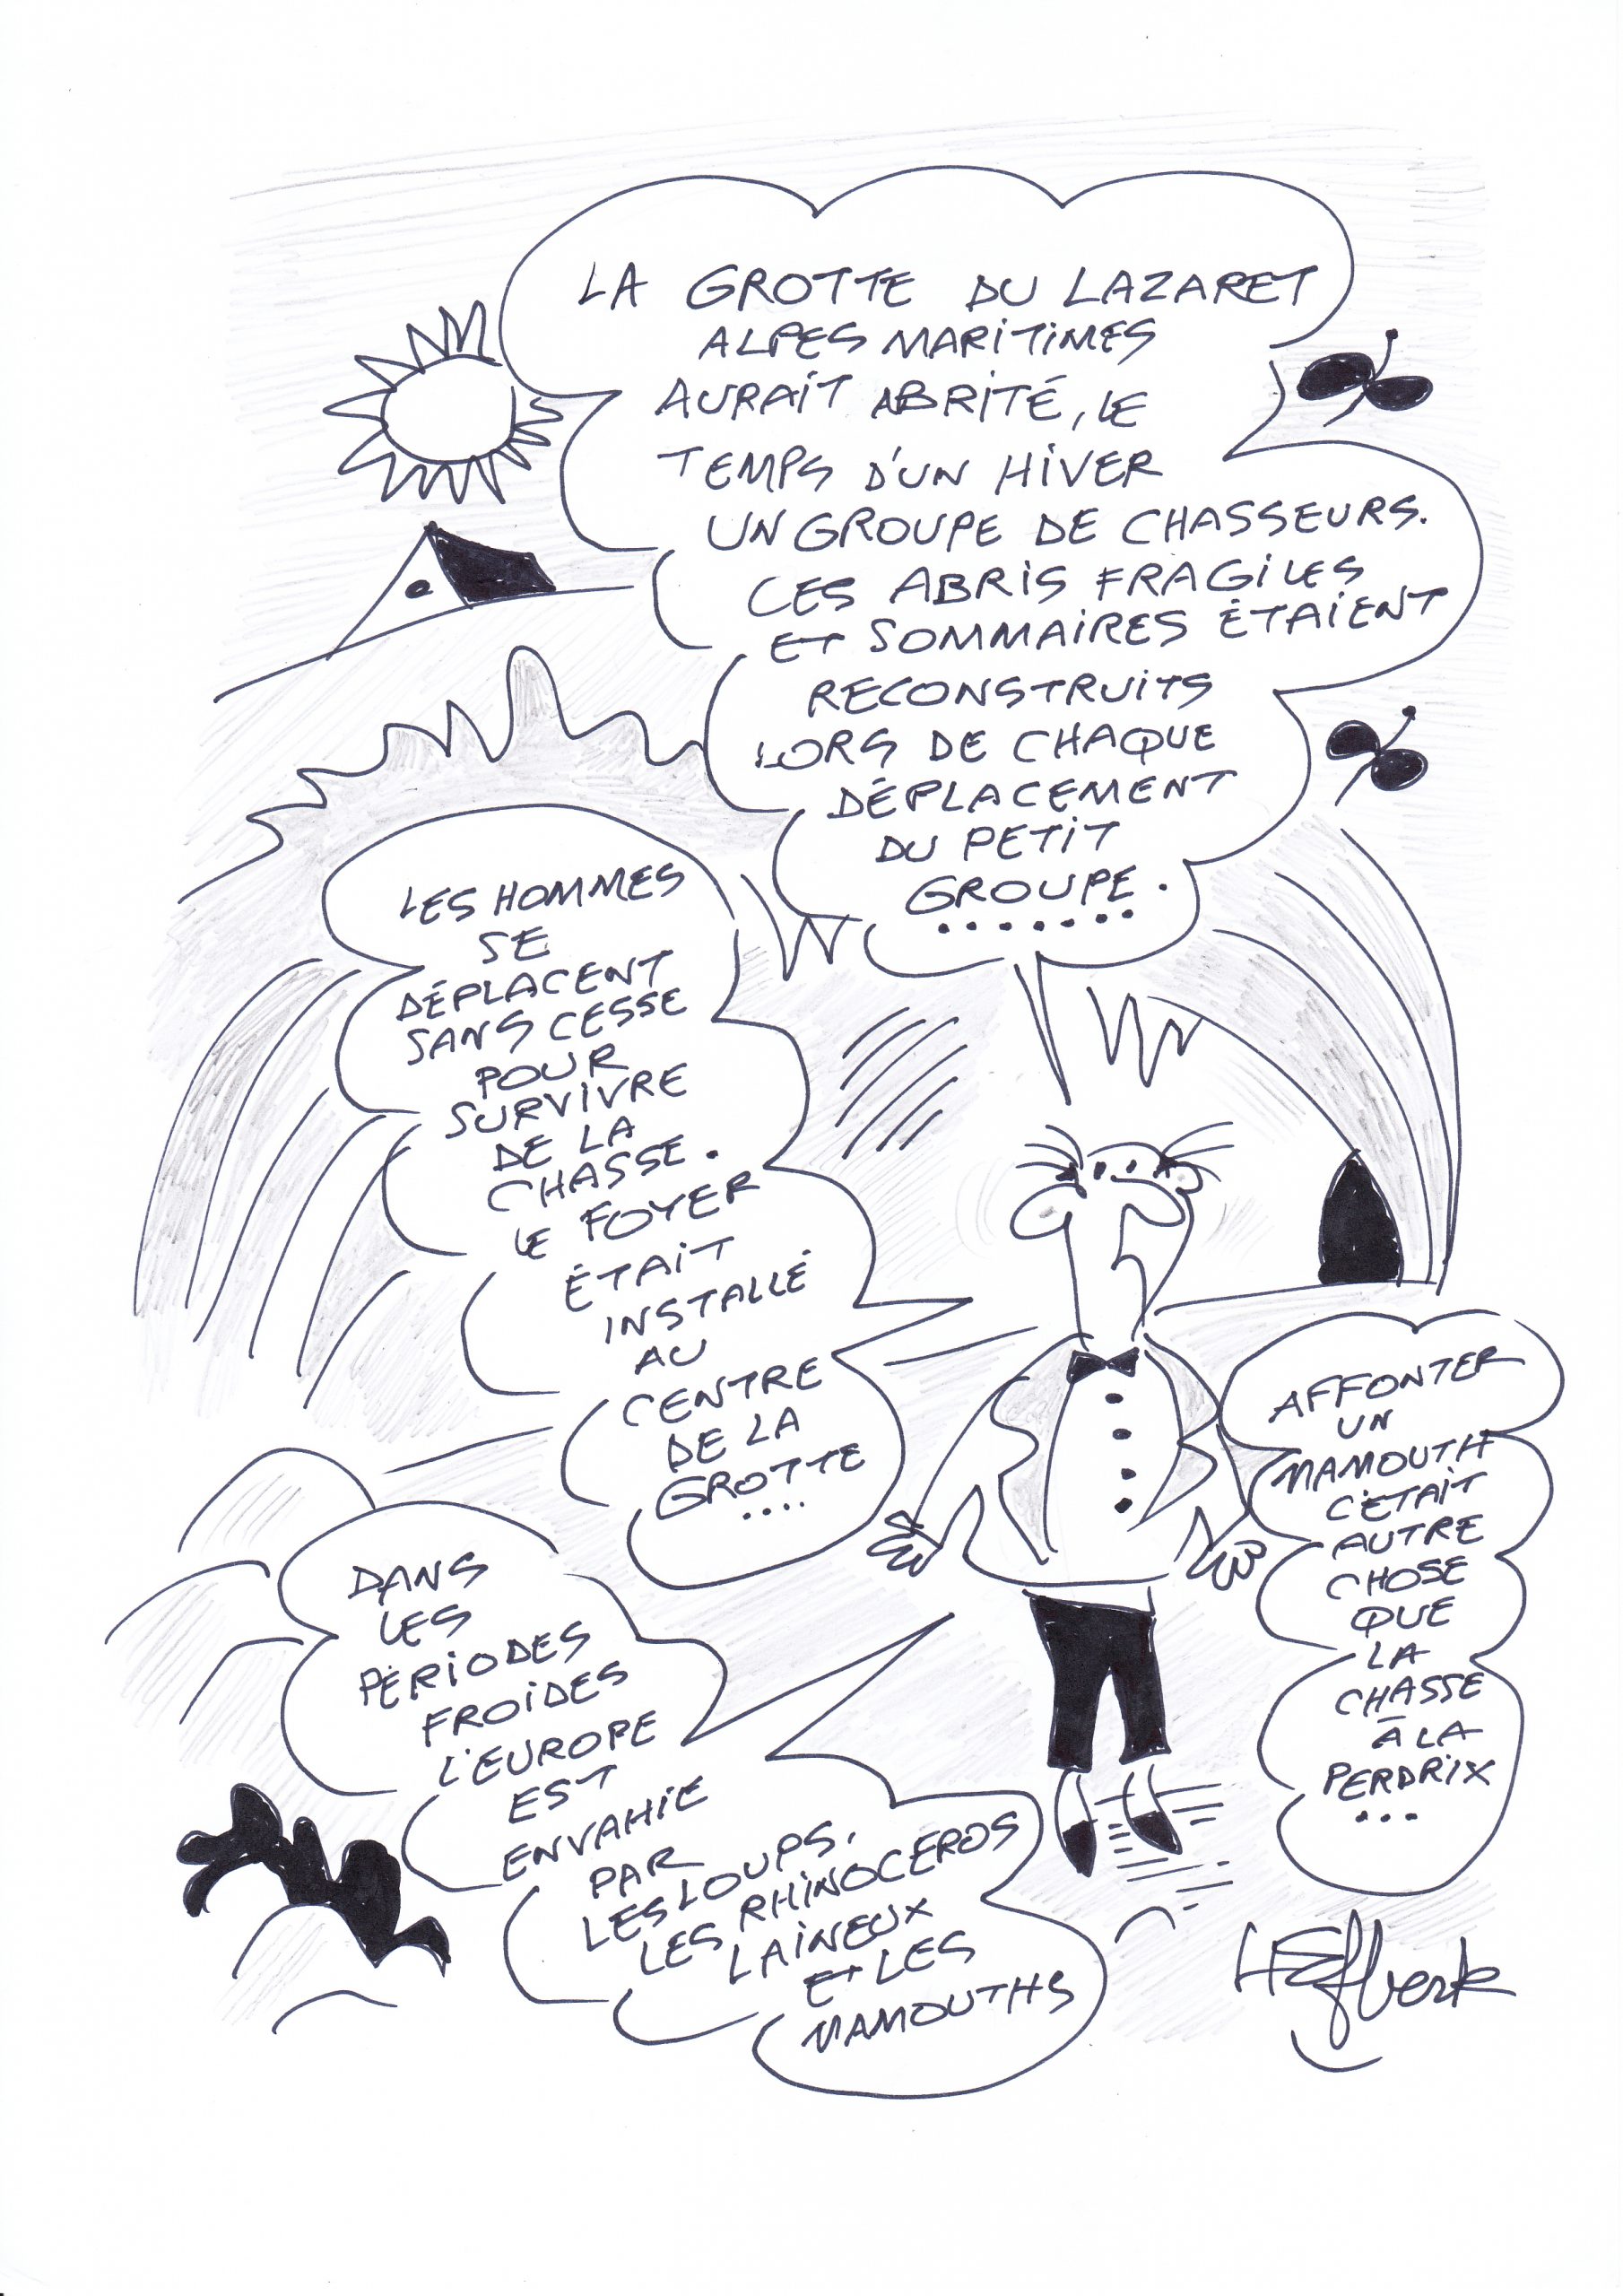 LA GROTTE DU LAZARET
ALPES MARITIMES
AURAIT ABRITÉ, LE
TEMPS D'UN HIVER
UN GROUPE DE CHASSEURS.
CES ABRIS FRAGILES
ET SOMMAIRES ÉTAIENT
RECONSTRUITS
LORS DE CHAQUE
DÉPLACEMENT
DU PETIT
GROUPE.
.......
LES HOMMES
SE
DÉPLACENT
SANS CESSE
POUR
SURVIVRE
DE LA
CHASSE.
LE FOYER
ÉTAIT
INSTALLÉ
AU
CENTRE
DE LA
GROTTE
....
AFFONTER
UN
MAMOUTH
C'ÉTAIT
AUTRE
CHOSE
QUE
LA
CHASSE
À LA
PERDRIX
...
DANS
LES
PÉRIODES
FROIDES
L'EUROPE
EST
ENVAHIE
PAR
LES LOUPS,
LES RHINOCEROS
LAINEUX
ET LES
MAMOUTHS